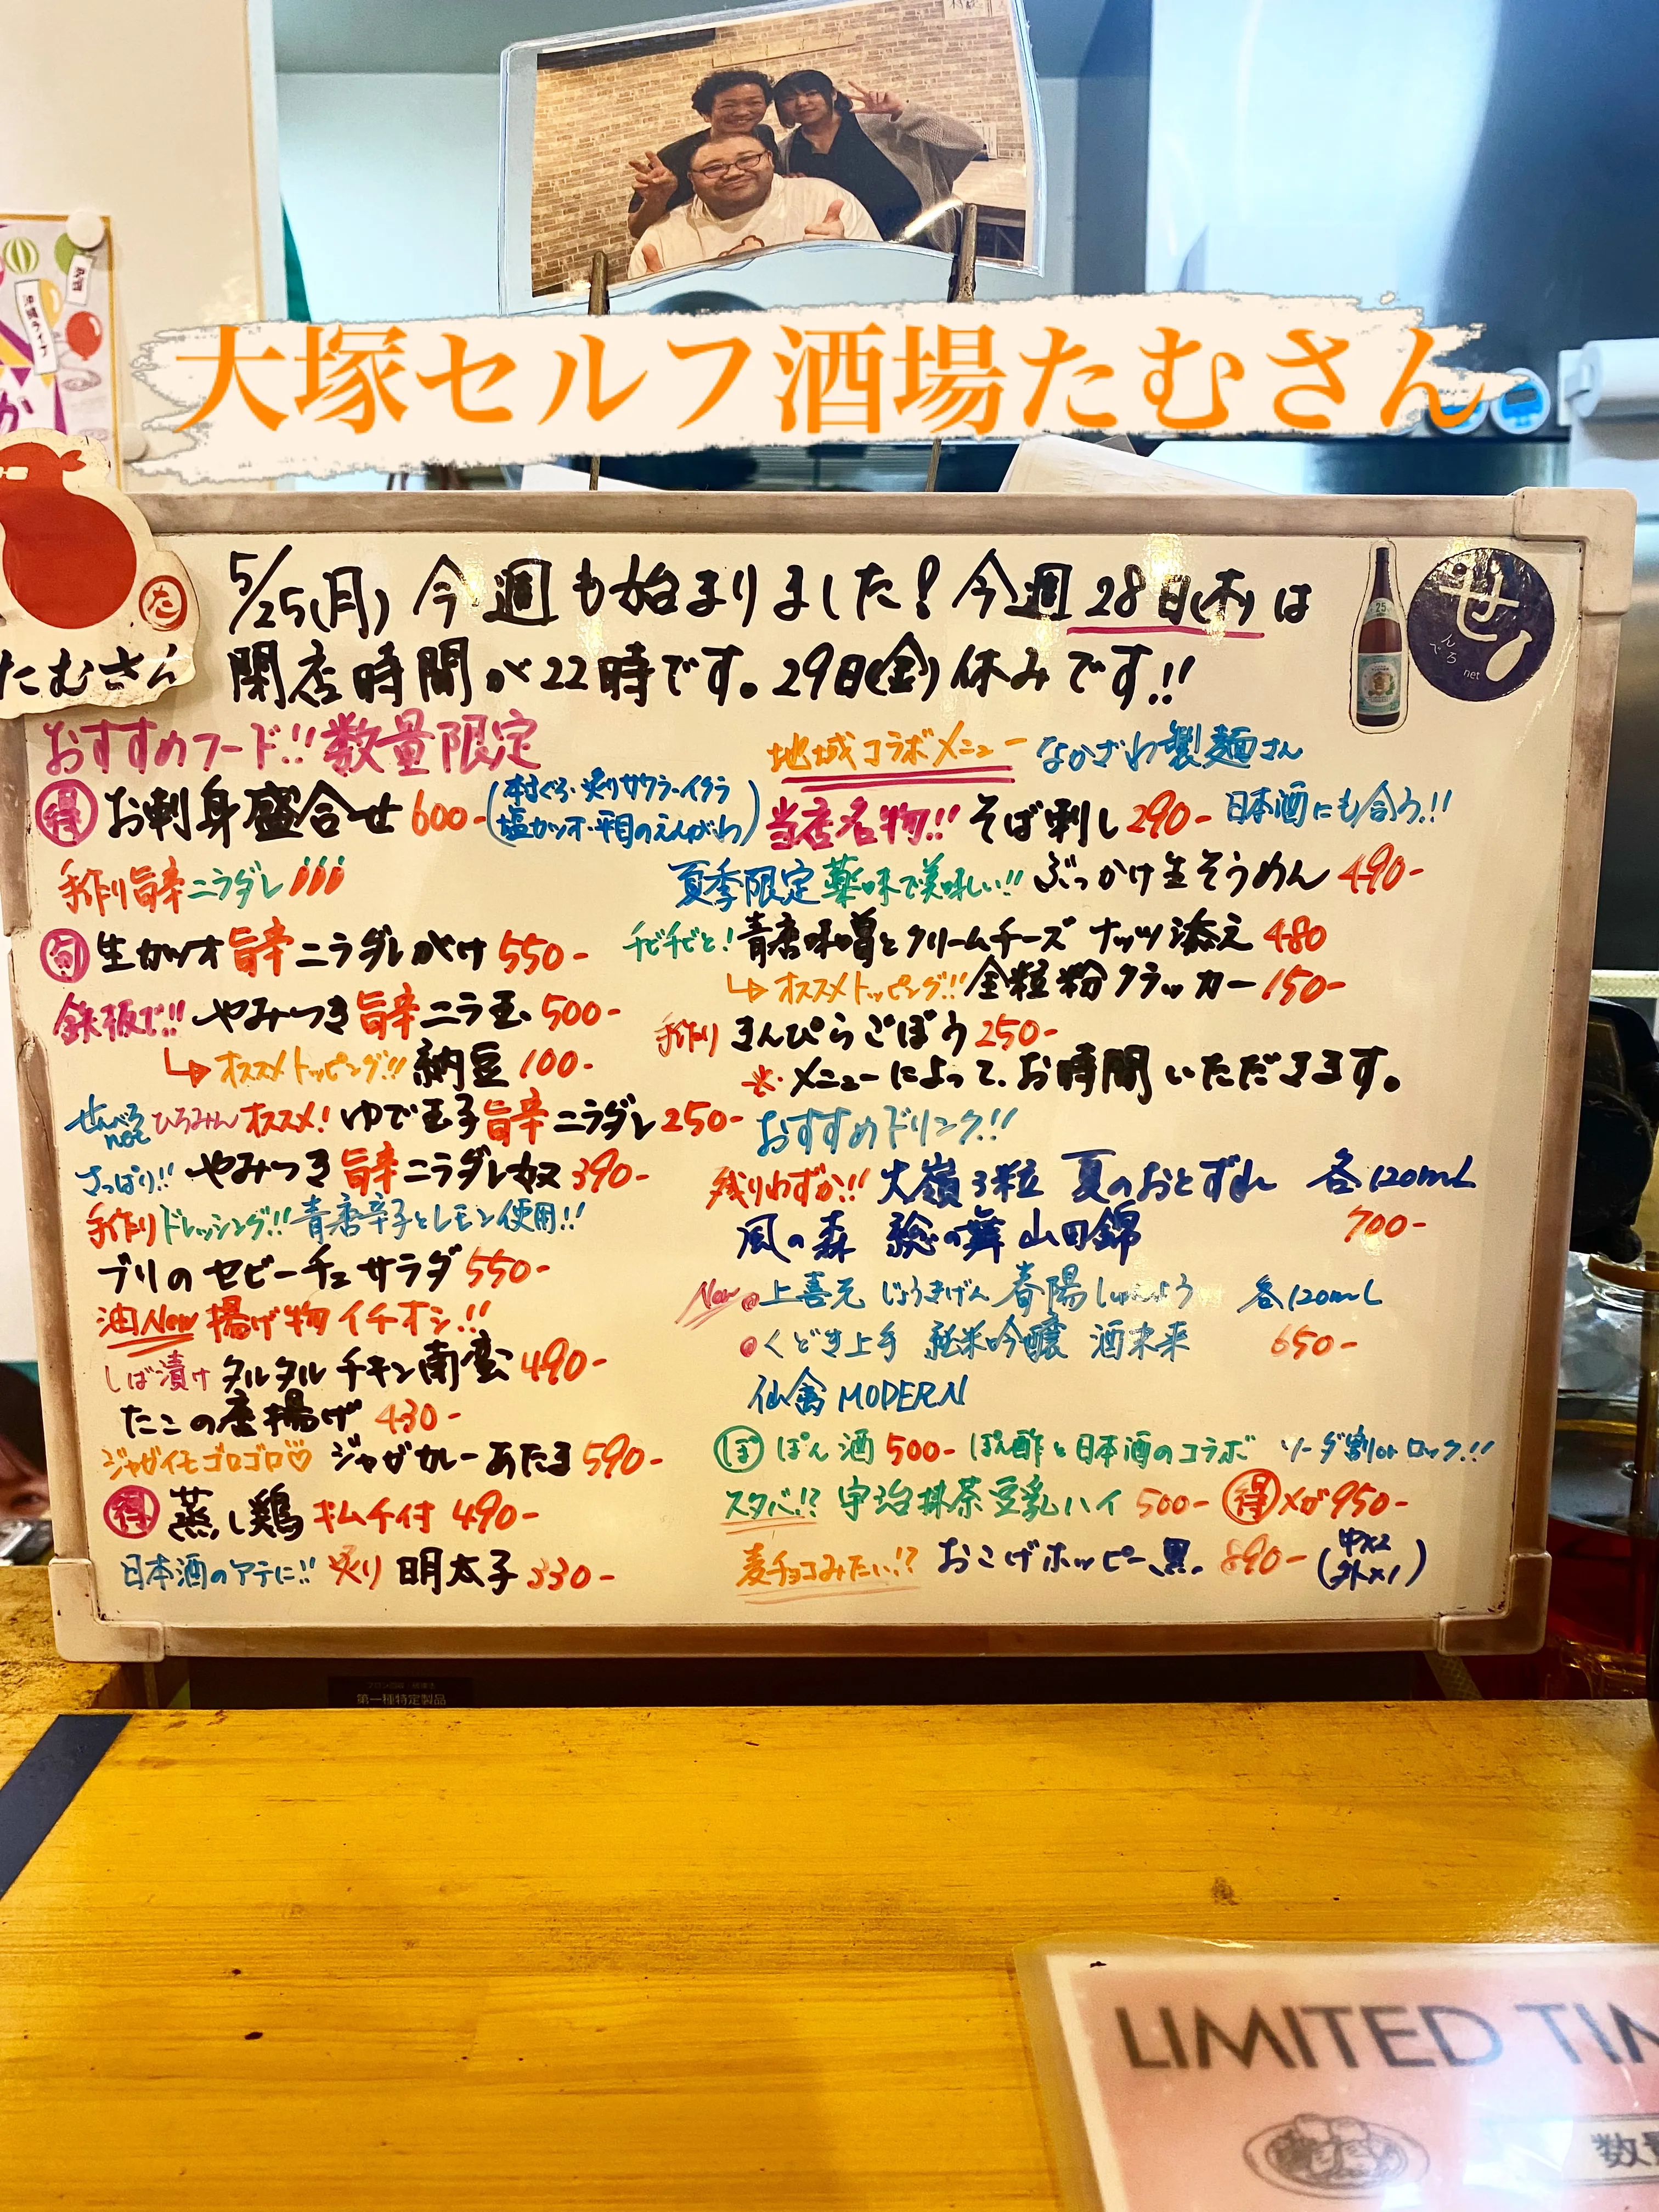 大塚セルフ酒場たむさん
沖縄ライブ
か
た
たむさん
5/25(月) 今週も始まりました！今週28日(木)は
閉店時間が22時です。29日(金)休みです!!
せんべろ
net
おすすめフード!!数量限定
得 お刺身盛合せ 600-(本まぐろ・炙りサワラ・イクラ
塩カツオ・平目のえんがわ)
手作り旨辛ニラダレ
旬 生カツオ旨辛ニラダレがけ 550-
鉄板で!! やみつき旨辛ニラ玉 500-
↳オススメトッピング!! 納豆 100-
せんべろnet ひろみんオススメ! ゆで玉子旨辛ニラダレ250-
さっぱり!! やみつき旨辛ニラダレ奴 390-
手作りドレッシング!!青唐辛子とレモン使用!!
ブリのセビーチェサラダ550-
油New 揚げ物イチオシ!!
しば漬け タルタルチキン南蛮490-
たこの唐揚げ 430-
ジャガイモゴロゴロ♡ ジャガカレーあたま590-
得 蒸し鶏 キムチ付 490-
日本酒のアテに!! 炙り 明太子 330-
地域コラボメニュー なかざわ製麺さん
当店名物!! そば刺し290- 日本酒にも合う!!
夏季限定 薬味で美味しい!! ぶっかけ生そうめん 490-
チビチビと! 青唐味噌とクリームチーズ ナッツ添え 480
↳オススメトッピング!!全粒粉クラッカー150-
手作り きんぴらごぼう250-
※メニューによって、お時間いただきます。
おすすめドリンク!!
残りわずか!! 大嶺3粒 夏のおとずれ 各120mL
風の森 総の舞 山田錦 700-
New 上喜元 じょうきげん 春陽しゅんよう 各120mL
くどき上手 純米吟醸 酒未来 650-
仙禽 MODERN
ぽ ぽん酒 500- ぽん酢と日本酒のコラボ ソーダ割orロック!!
スタバ!? 宇治抹茶豆乳ハイ 500- 得メガ950-
麦チョコみたい!? おこげホッピー黒 890- (中×2
外×1)
第一種特定製品
LIMITED TIM
数量